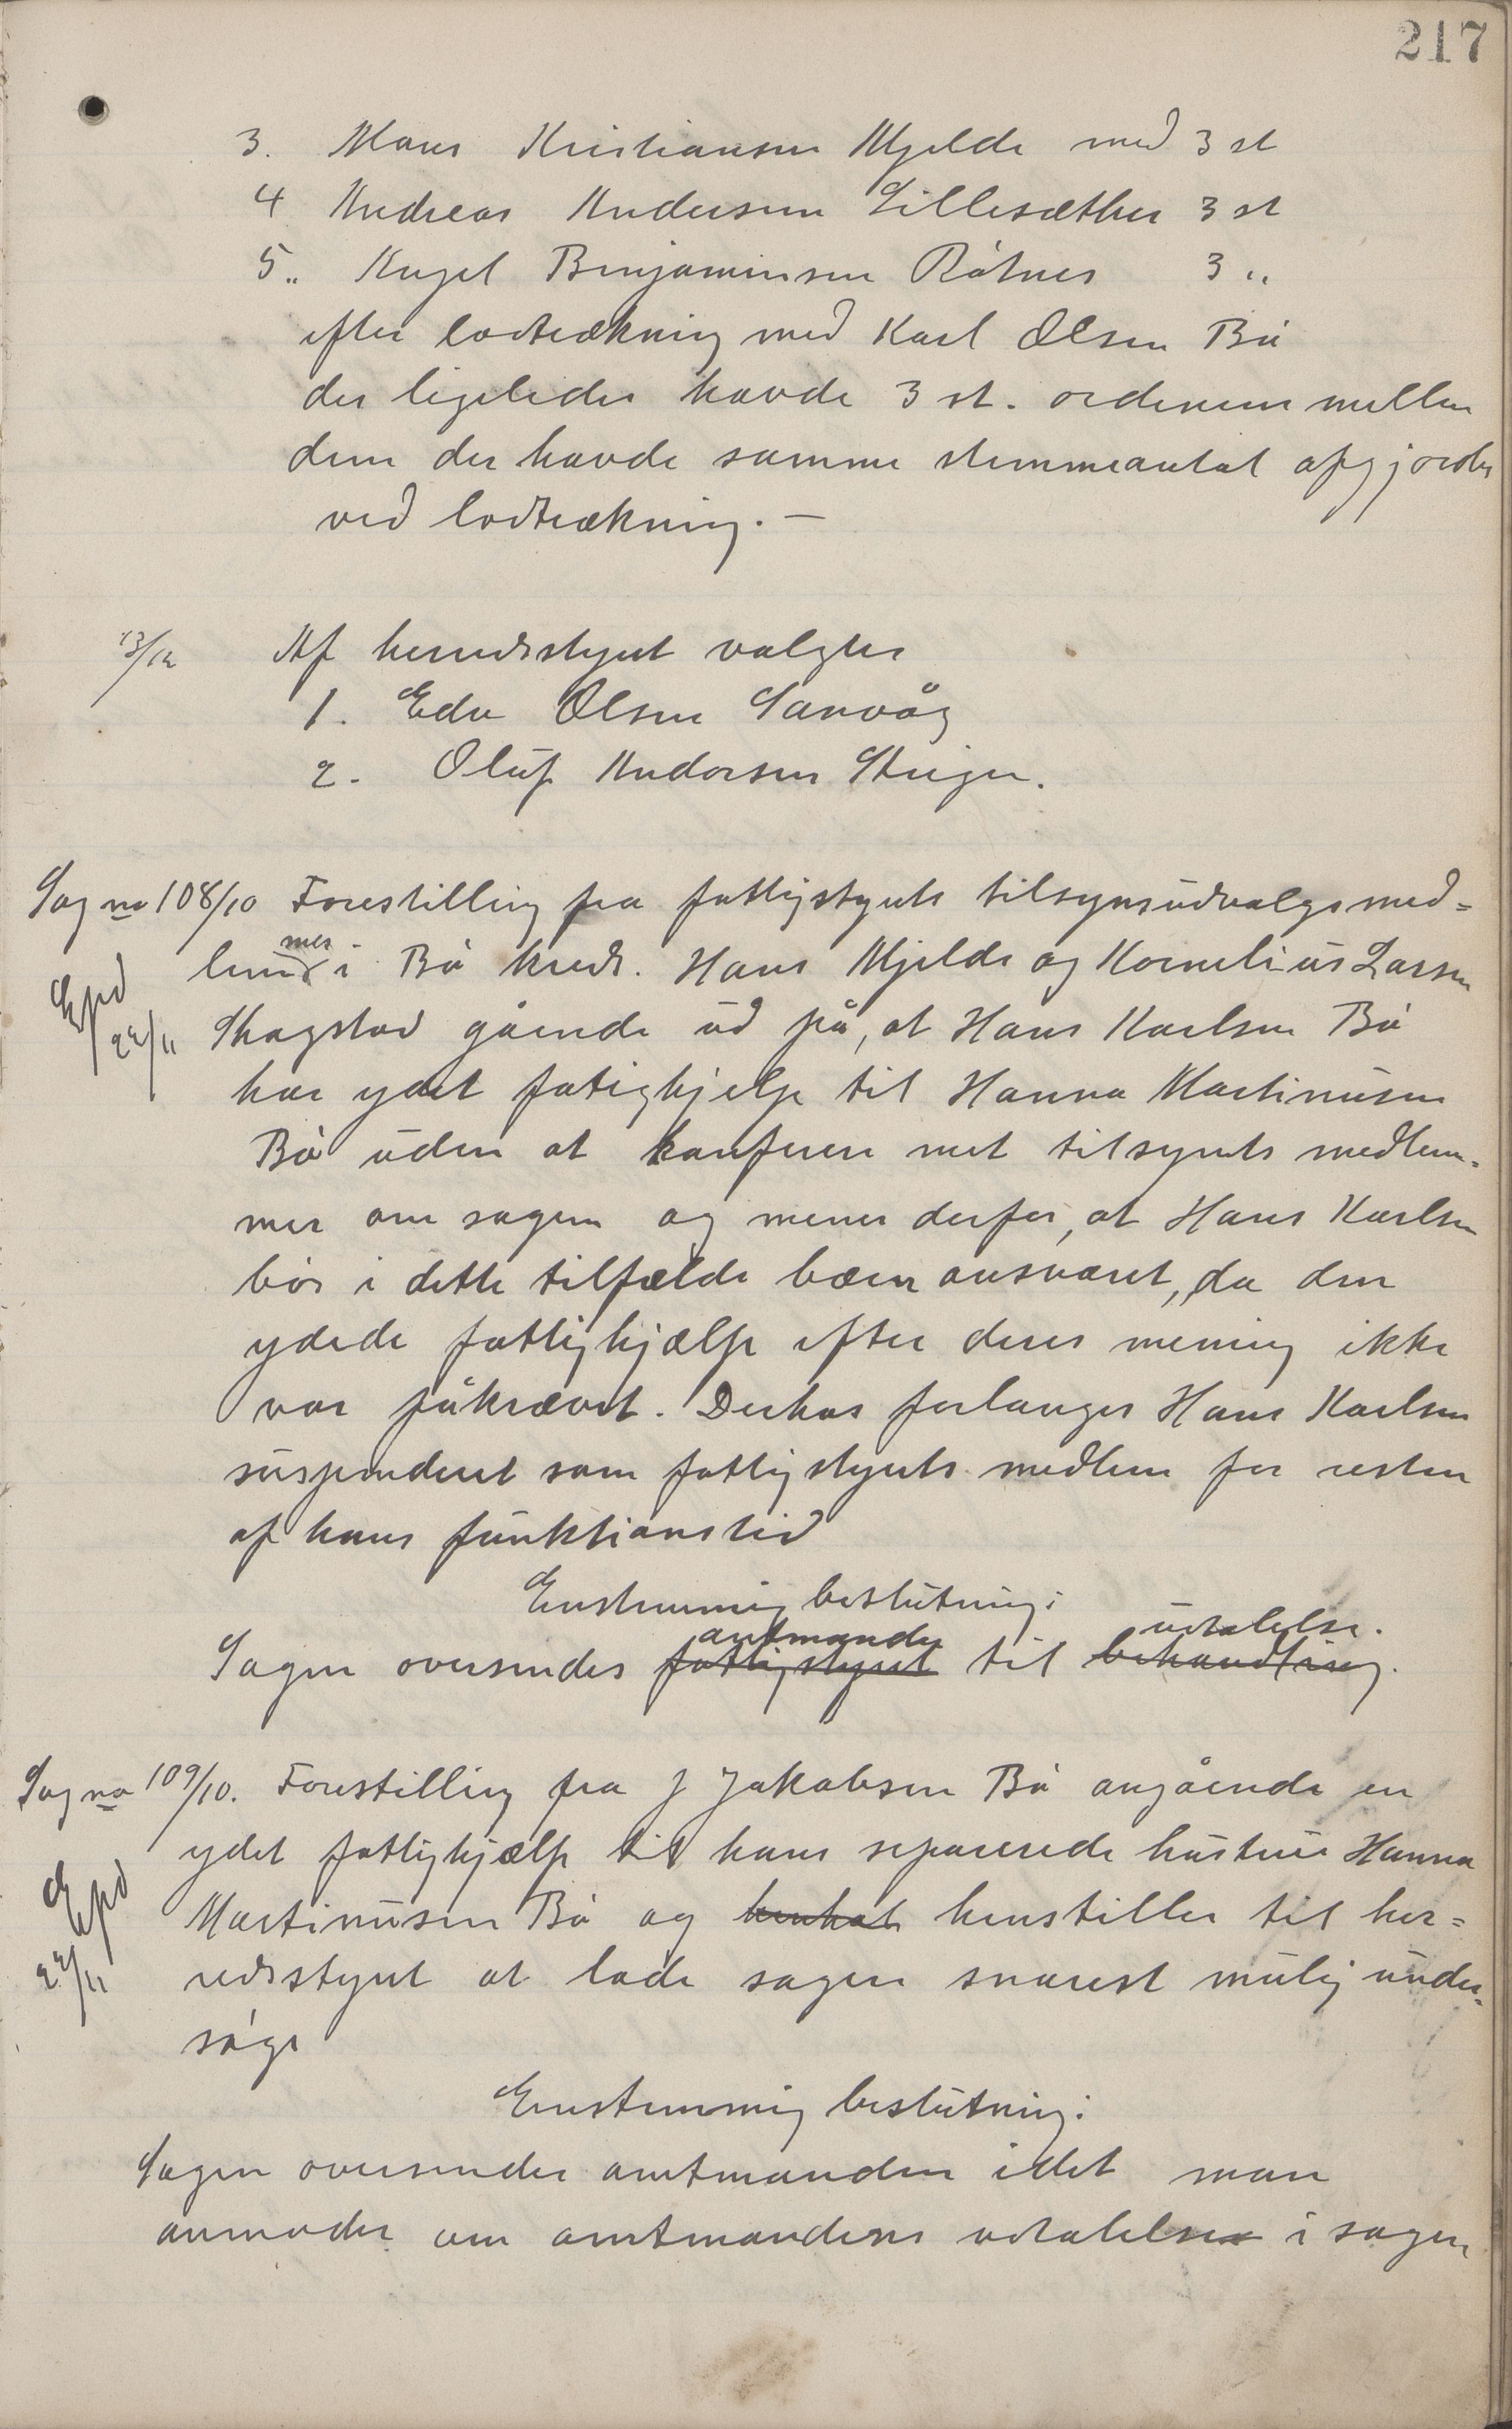 217
3. Hans Kristiansen Mjelde med 3 st
4 Andreas Andersen Lillesæther 3 st
5. „ Angel Benjaminsen Råtnes 3 „
efter lodtrækning med Karl Olsen Bø
der ligeledes havde 3 st. ordenen mellem
dem der havde samme stemmeantal afgjordes
ved lodtrækning. —
13/12 Af herredsstyret valgtes
1. Edv Olsen Sanvåg
2. Oluf Andorsen Steigen.
Sag no 108/10 Forestilling fra fattigstyrets tilsynsudvalgsmed=
lemmer i Bø kreds. Hans Mjelde og Kornelius Larsen
Exped 22/11
Skagstad gående ud på, at Hans Karlsen Bø
har ydet fatighjelp til Hanna Martinusen
Bø uden at konferere met tilsynets medlem=
mer om sagen og mener derfor, at Hans Karlsen
bør i dette tilfælde bære ansvaret, da den
ydede fattighjælp efter deres mening ikke
var påkrævet. Derhos forlanges Hans Karlsen
suspenderet som fattigstyrets medlem for resten
af hans funktionstid
Enstemmig beslutning:
amtmanden udtalelse.
Sagen oversendes fattigstyret til behandling.
Sag no 109/10. Forestilling fra J Jakobsen Bø angående en
ydet fattighjælp til hans separerede hustrue Hanna
Exped 22/11
Martinusen Bø og henstiller til her=
redsstyret at lade sagen snarest mulig under=
søge
Enstemmig beslutning:
Sagen oversendes amtmanden idet man
anmoder om amtmandens udtalelse i sagen